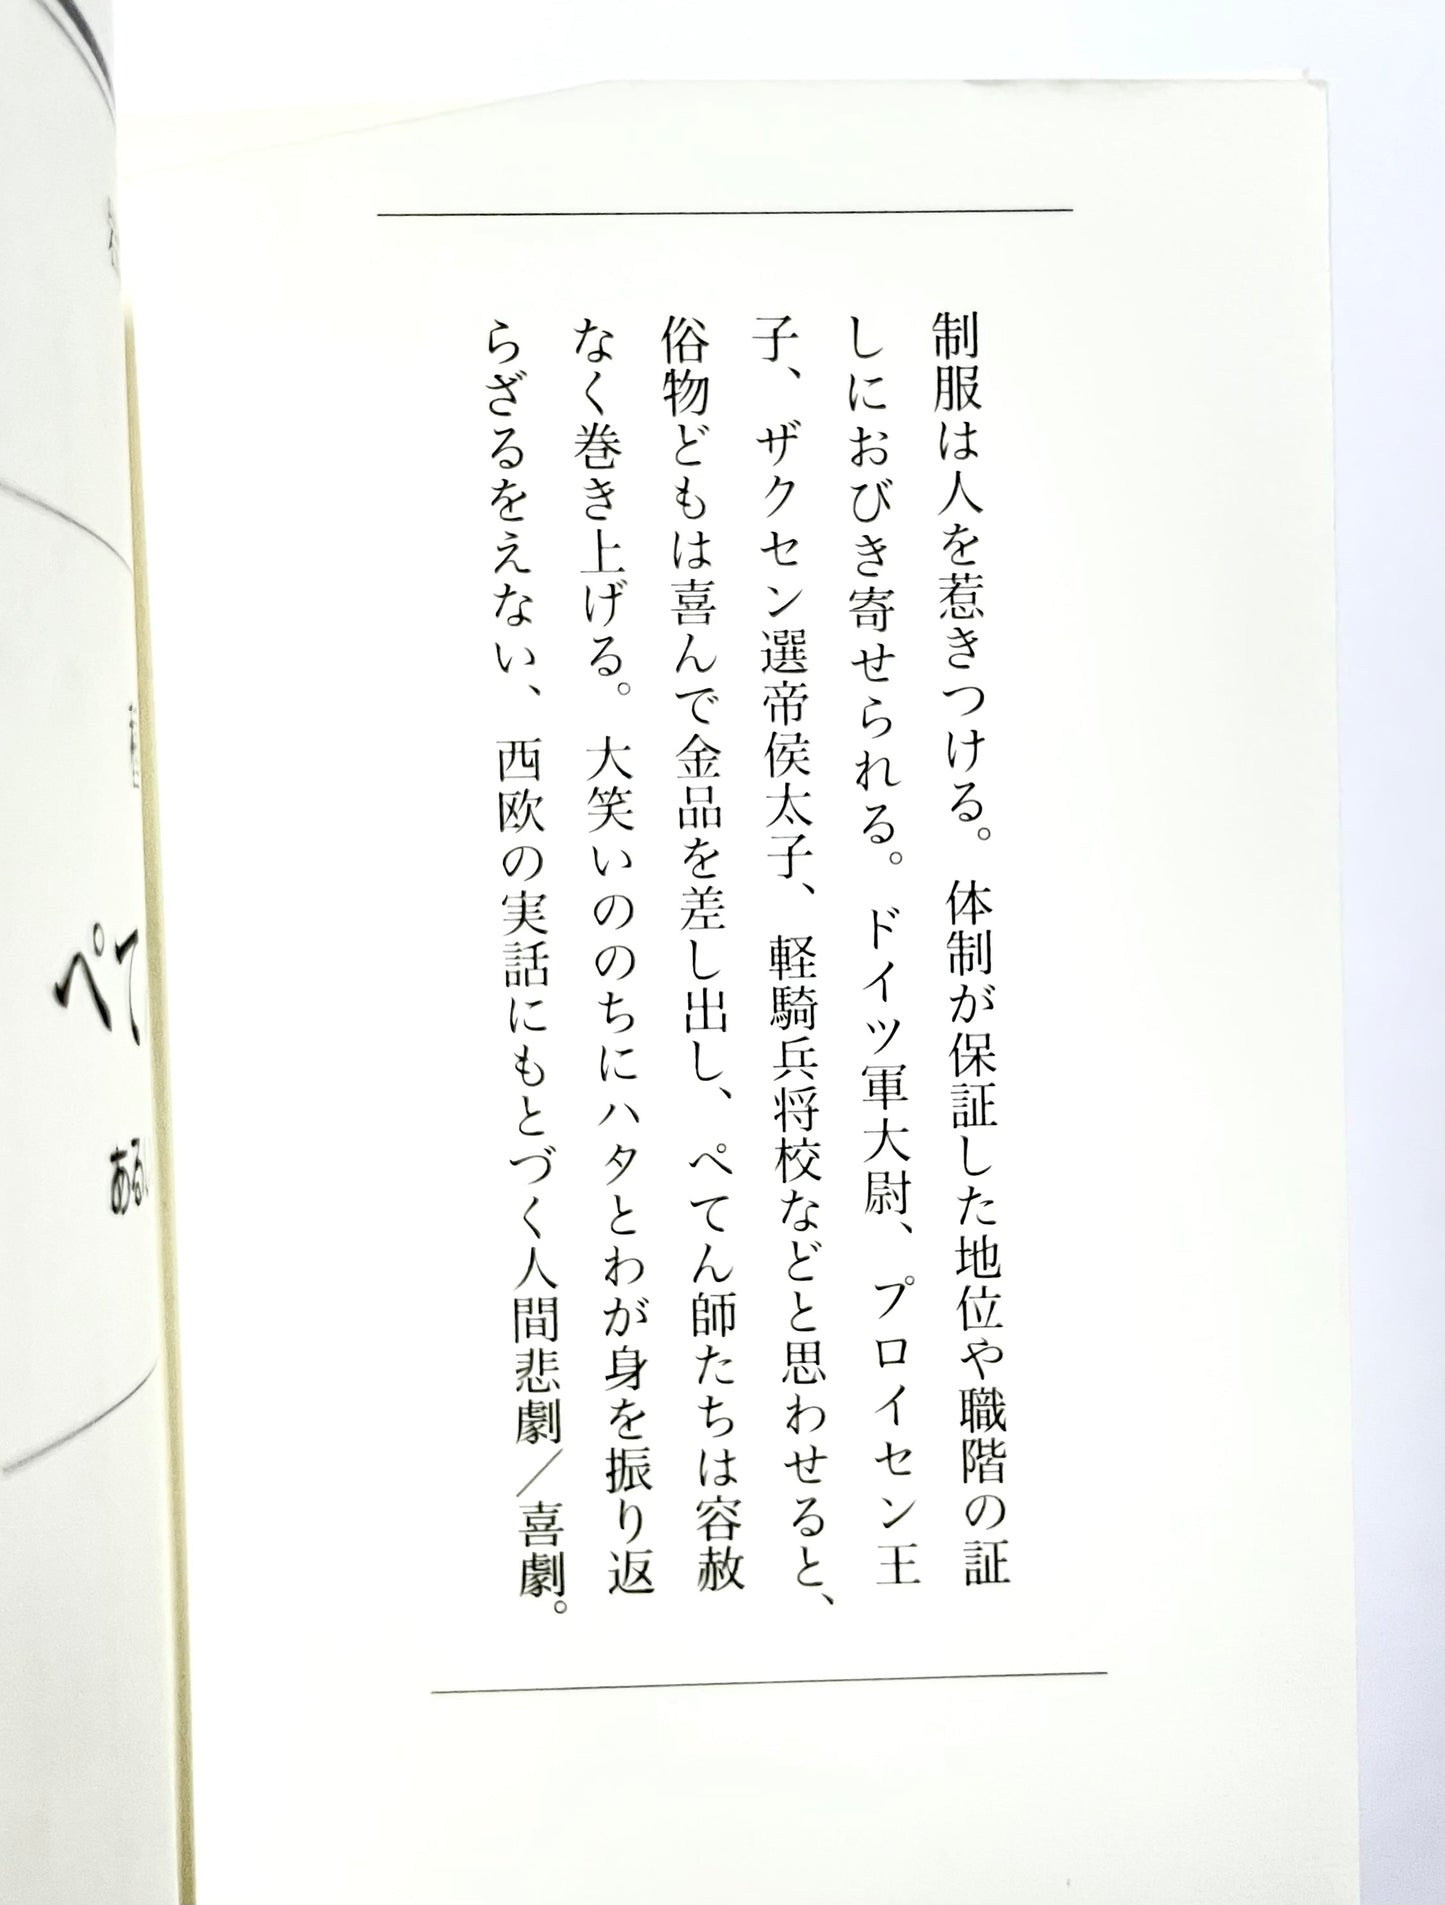 制服は人を惹きつける。体制が保証した地位や職階の証
しにおびき寄せられる。ドイツ軍大尉、プロイセン王
子、ザクセン選帝侯太子、軽騎兵将校などと思わせると、
俗物どもは喜んで金品を差し出し、ぺてん師たちは容赦
なく巻き上げる。大笑いののちにハタとわが身を振り返
らざるをえない、西欧の実話にもとづく人間悲劇／喜劇。
ぺて
ある